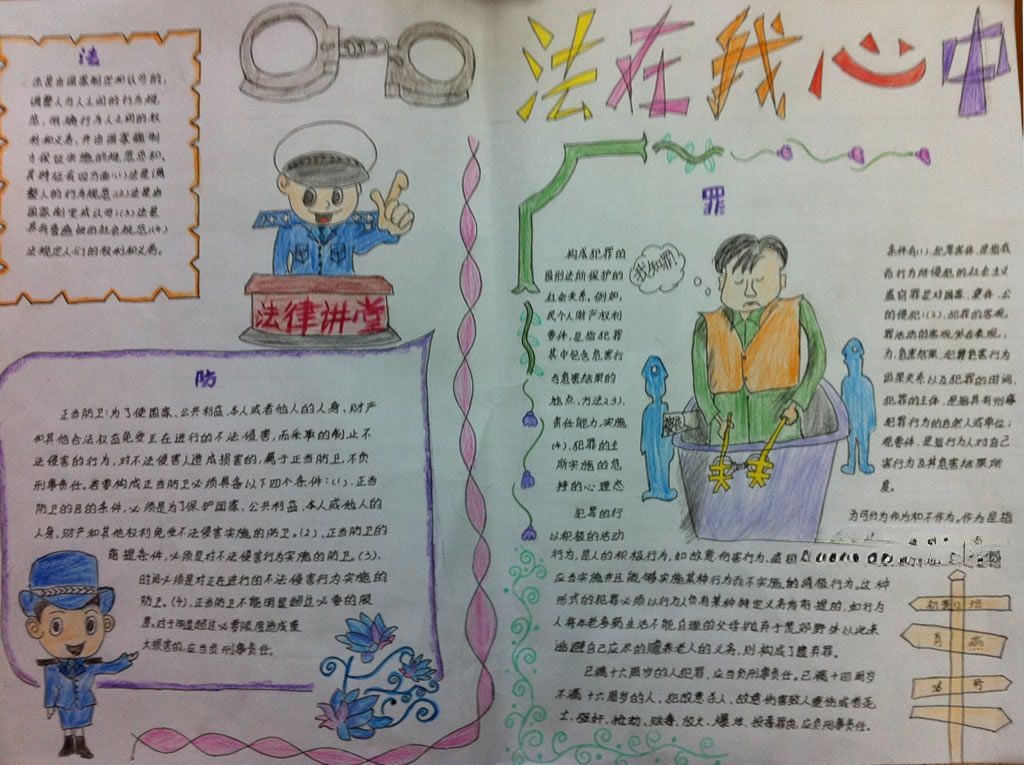 法在我心中
法
法是由国家制定和认可的，
调整人与人之间的行为规
范，明确行为人之间的权
利和义务，并由国家强制
力保证实施的规范总和，
其特征有四方面(1)法是调
整人的行为规范(2)法是由
国家制定或认可；(3)法是
具有普遍性的社会规范(4)
法规定人们的权利和义务。
法律讲堂
防
正当防卫：为了使国家、公共利益、本人或者他人的人身，财产
和其他合法权益免受正在进行的不法侵害，而采取的制止不
法侵害的行为，对不法侵害人造成损害的，属于正当防卫，不负
刑事责任。若要构成正当防卫必须具备以下四个条件：(1)、正当
防卫的目的条件，必须是为了保护国家、公共利益、本人或他人的
人身，财产和其他权利免受不法侵害实施的防卫。(2)、正当防卫的
前提条件，必须是对不法侵害行为实施的防卫。(3)、
时间必须是对正在进行的不法侵害行为实施的
防卫。(4)、正当防卫不能明显超过必要的限
度，对于明显超过必要限度造成重
大损害的，应当负刑事责任。
罪
我知罪
构成犯罪的
国刑法所保护的
社会关系。例如，
民个人财产权利
要件，是指犯罪
其中包含危害行
当危害结果的
地点、方法)(3)、
责任能力，实施
(4)、犯罪的主
所实施的危
持的心理态
犯罪的行
以积极的活动
条件有(1)、犯罪客体，是指我
而行为所侵犯的社会主义
盗窃罪是对国家、集体、公
的侵犯；(2)、犯罪的客观，
罪活动的客观外在表现，
为、危害结果、犯罪危害行为
因果关系以及犯罪的时间、
犯罪的主体，是指具有刑事
犯罪行为的自然人或单位；
观要件，是指行为人对自己
害行为及其危害结果所
度。
为可分为作为和不作为。作为是指
行为，是人的积极行为，如故意伤害行为、盗窃
应当实施并且能够实施某种行为而不实施的消极行为，这种
形式的犯罪必须以行为人负有某种特定义务为前提的，如行为
人将年老多病生活不能自理的父母抛弃于荒郊野外以此来
逃避自己应尽的赡养老人的义务，则构成了遗弃罪。
已满十六周岁的人犯罪，应当负刑事责任。已满十四周岁
不满十六周岁的人，犯故意杀人、故意伤害致人重伤或者死
亡、强奸、抢劫、贩毒、放火、爆炸、投毒罪的，应负刑事责任。